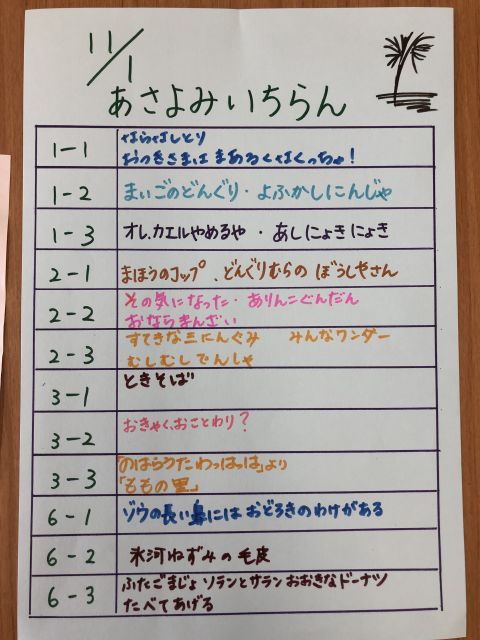 11/1
あさよみいちらん
1-1 はらはしとり
おつきさまは まあるくはくっちゃ!
1-2 まいごのどんぐり・よふかしにんじゃ
1-3 オレ、カエルやめるや・あしにょきにょき
2-1 まほうのコップ、どんぐりむらの ぼうしやさん
2-2 その気になった・ありんこぐんだん
おならまんざい
2-3 すてきな三にんぐみ みんなワンダー
むしむしでんしゃ
3-1 ときそば
3-2 おきゃく、おことわり?
3-3 「のはらうたわっはっは」より
「ももの里」
6-1 ゾウの長い鼻には おどろきのわけがある
6-2 氷河ねずみの毛皮
6-3 ふたごまじょ ソランとサラン おおきなドーナツ
たべてあげる